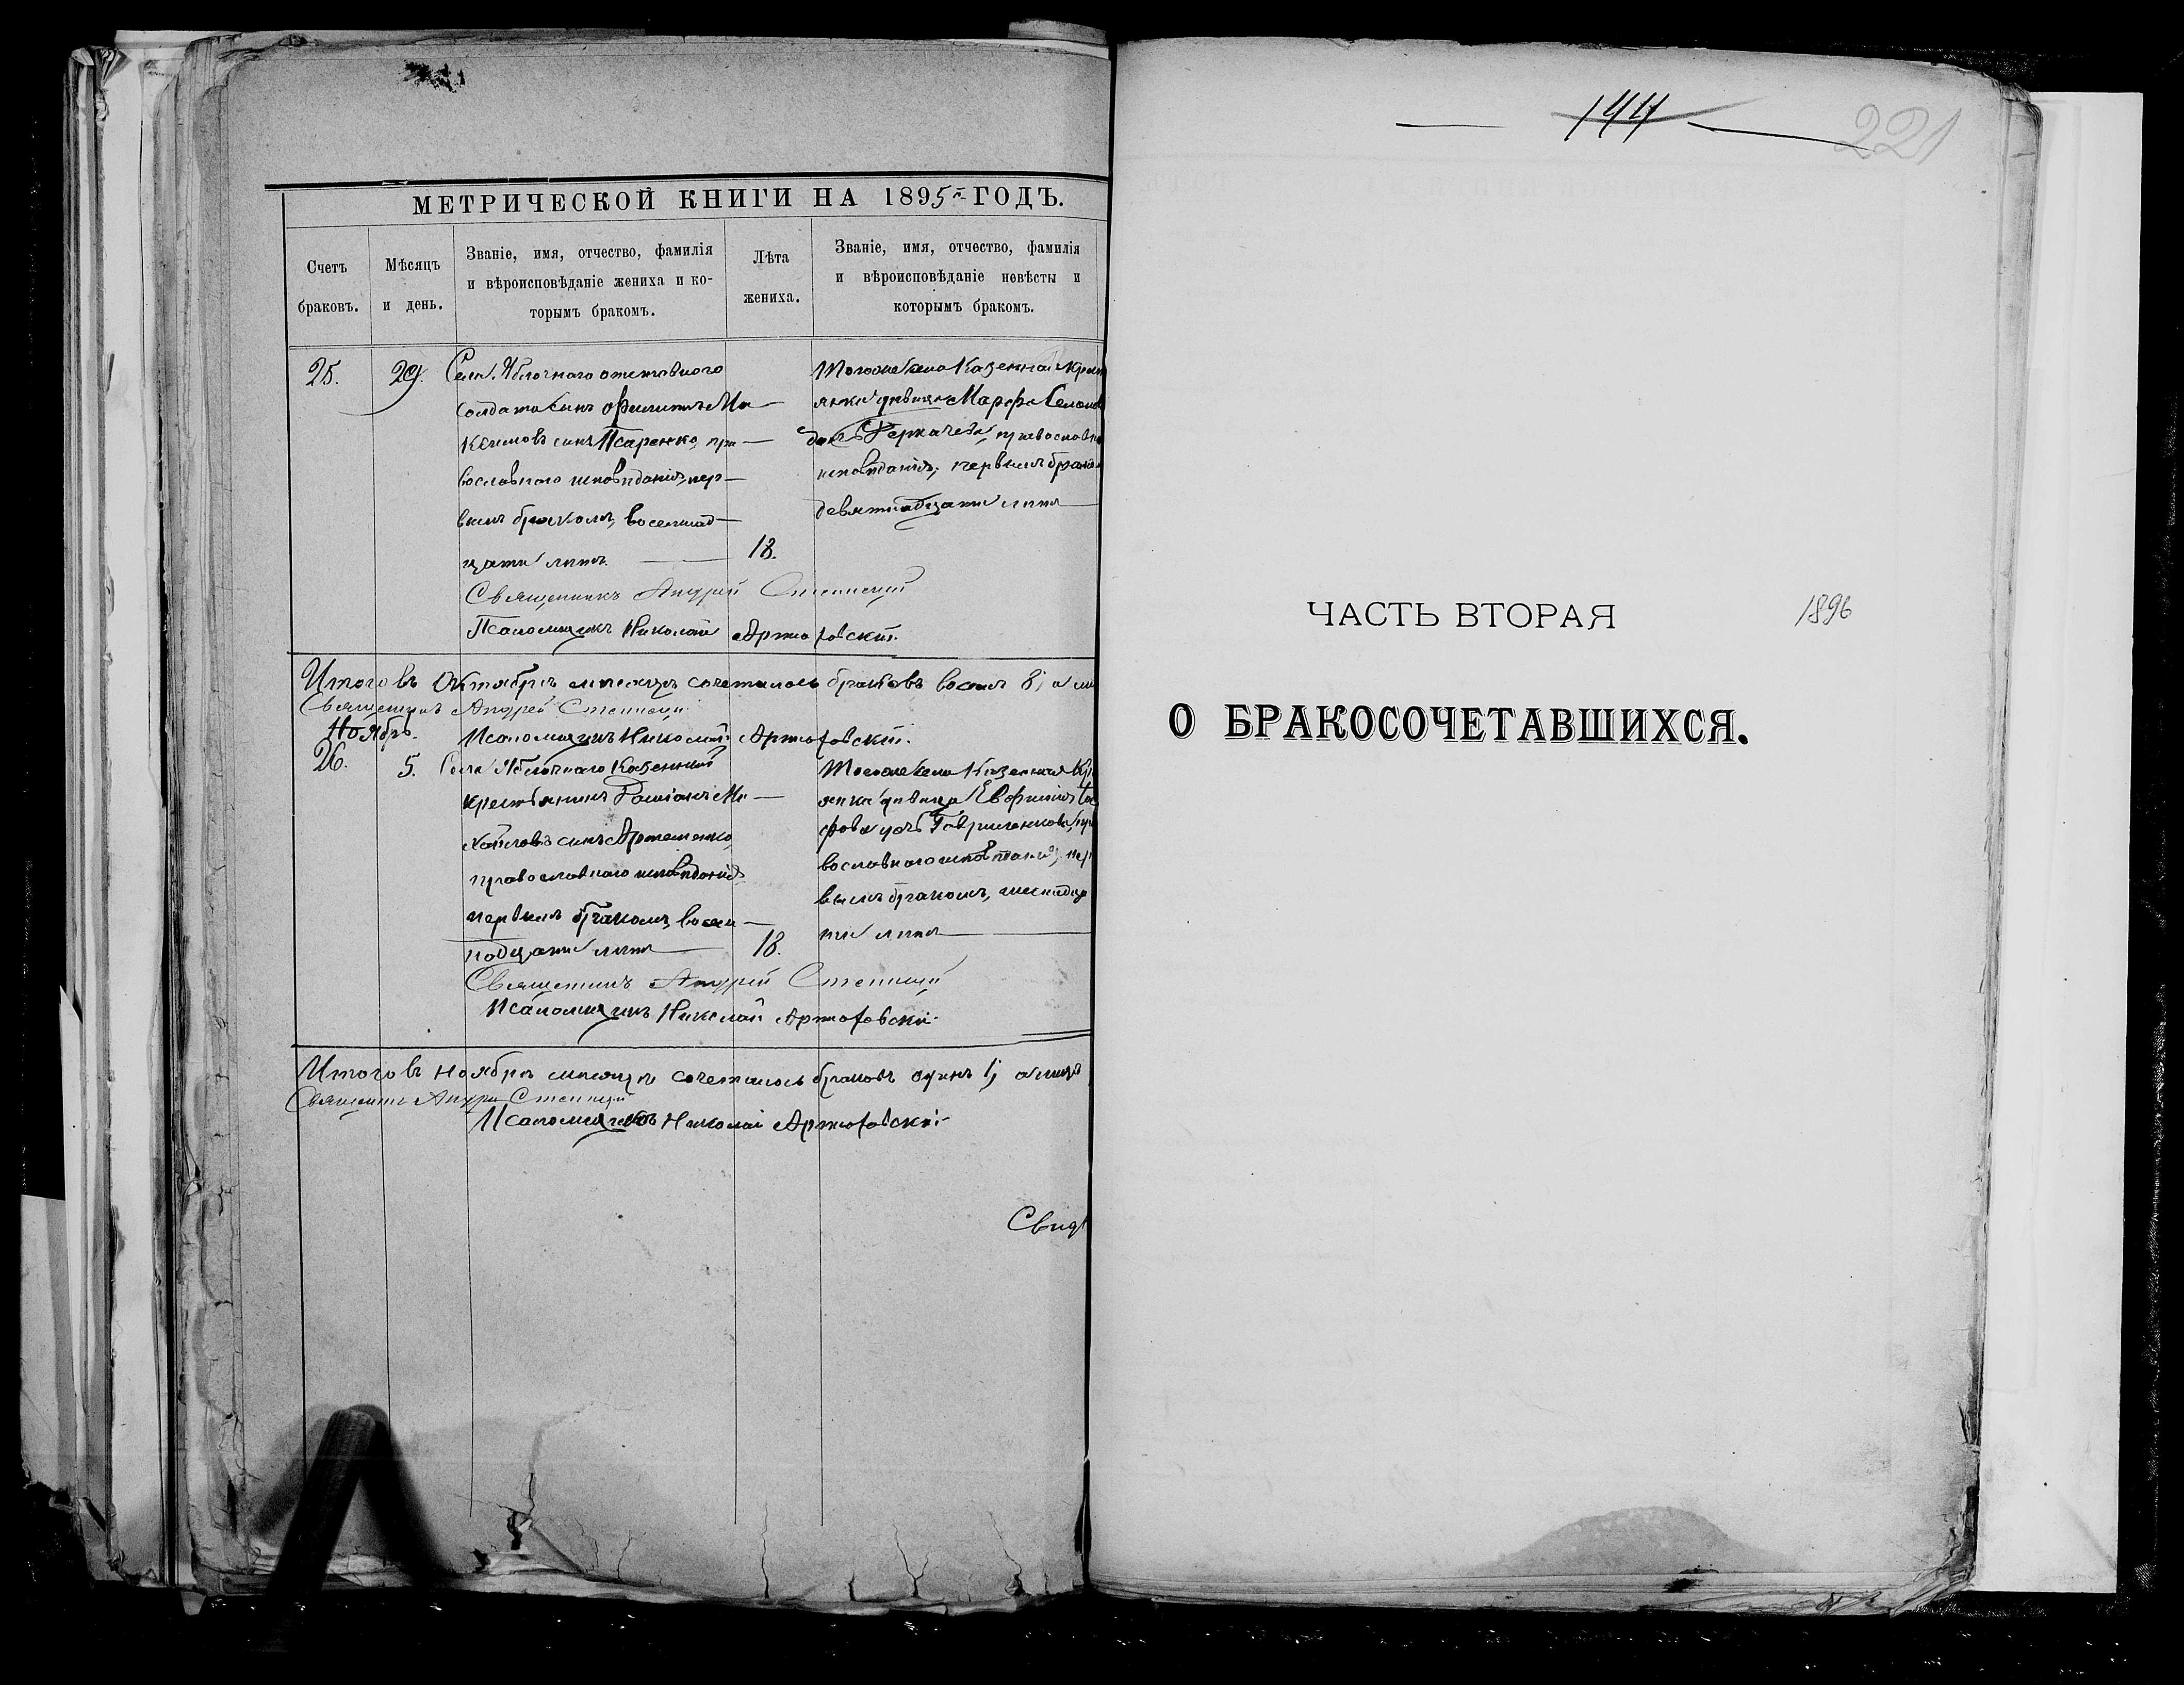 МЕТРИЧЕСКОЙ КНИГИ НА 1895й ГОДЪ.
Счетъ браковъ.
Мѣсяцъ и день.
Званіе, имя, отчество, фамилія
и вѣроисповѣданіе жениха и ко-
торымъ бракомъ.
Лѣта жениха.
Званіе, имя, отчество, фамилія
и вѣроисповѣданіе невѣсты и
которымъ бракомъ.
25.
29.
Села Яблочнаго отставного
солдата сынъ Филиппъ Ма
ксимовъ сынъ Псаренко, пра
вославнаго исповѣданія, пер
вымъ бракомъ, восемнад
цати лѣтъ.
18.
Тогоже села Казенная Крест
янка дѣвица Марфа
дочь православна
исповѣданія, первымъ брако
девятнадцати лѣтъ
Священникъ Андрей
Псаломщикъ Николай
Итого въ Октябрѣ мѣсяцѣ сочеталось браковъ восемь 8; а
Священникъ Андрей
Ноябрь.
Псаломщикъ Николай
26.
5.
Села Яблочнаго Казенный
крестьянинъ Романъ Ми
хайловъ сынъ Артеменко,
православнаго исповѣданія
первымъ бракомъ, восем
надцати лѣтъ
18.
Тогоже села Казенная Кр
янка дѣвица Евфимія
фова дочь Гавриленкова, пра
вославнаго исповѣданія, пер
вымъ бракомъ, шестнадца
ти лѣтъ
Священникъ Андрей
Псаломщикъ Николай
Итого въ Ноябрѣ мѣсяцѣ сочеталось браковъ одинъ 1;
Священникъ Андрей
Псаломщикъ Николай
Свид
144
221
ЧАСТЬ ВТОРАЯ
1896
О БРАКОСОЧЕТАВШИХСЯ.